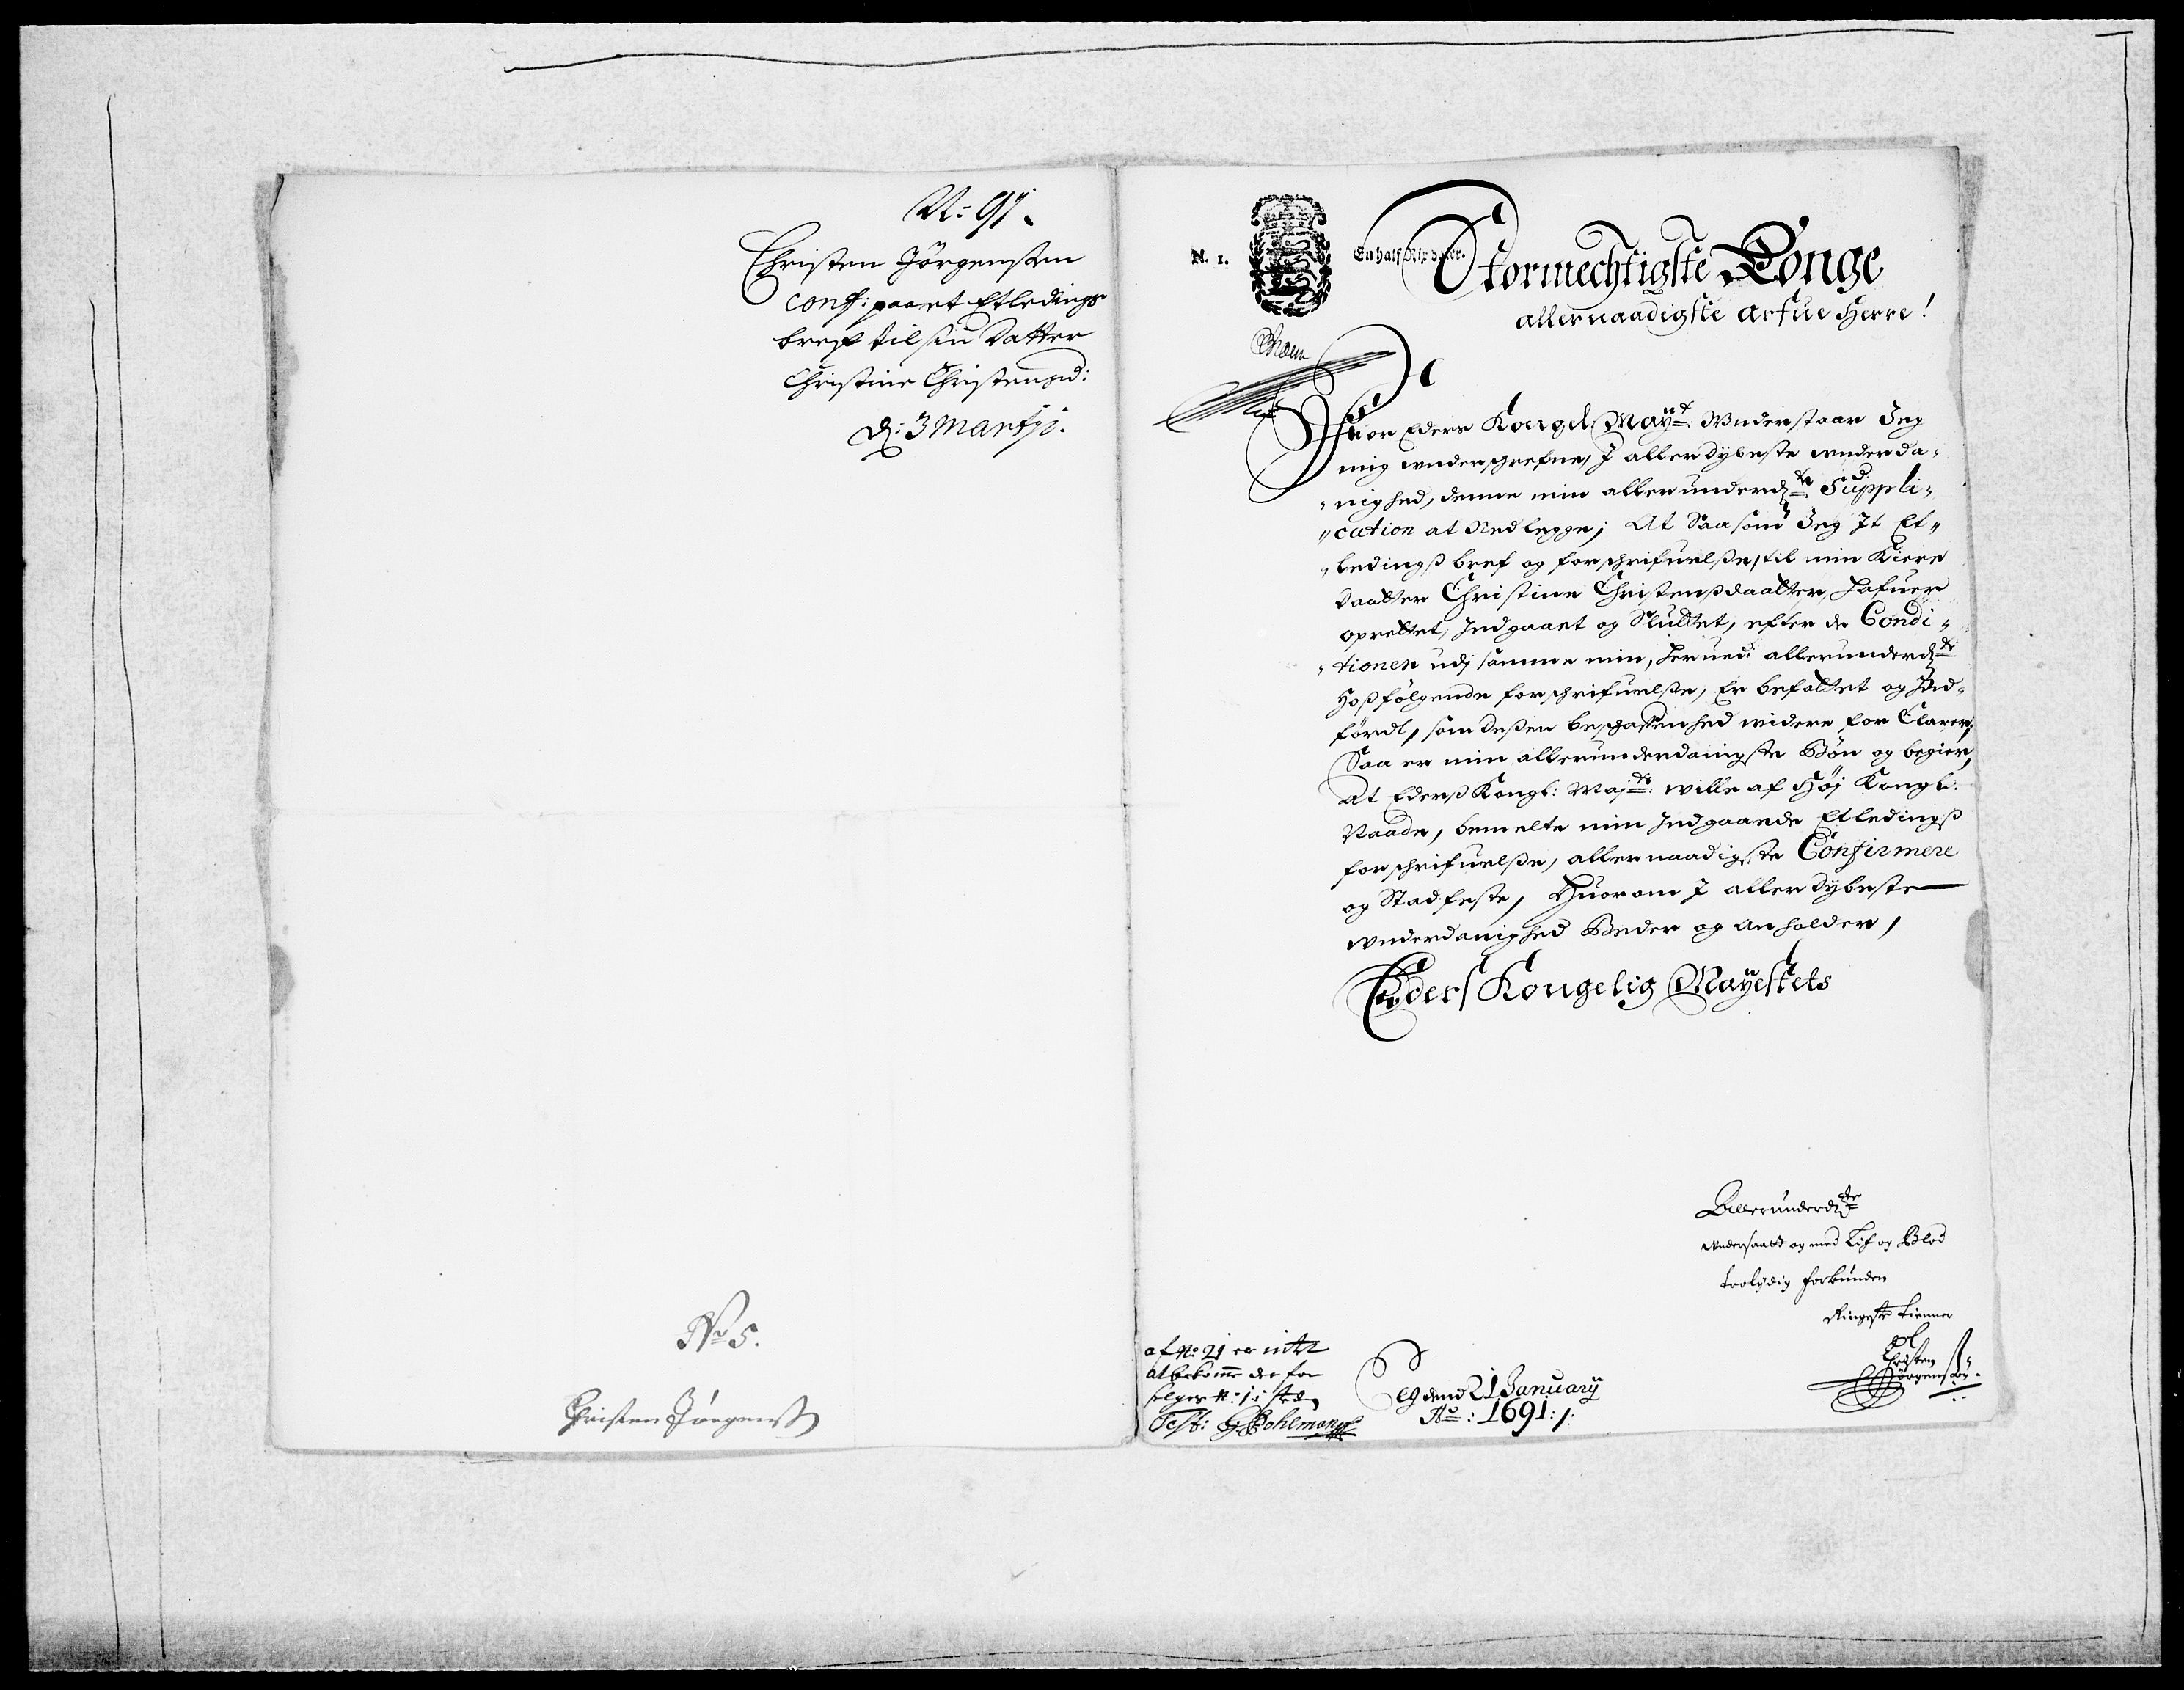 N: 91.
Christen Jörgensen
conf: paa et Etledings
bref til sin Datter
Christine Christensd:
d: 3 Martji.
No 5.
Christen Jörgens
N. 1.
En half Rix daler.
Stormechtigste Konge
allernaadigste Arfue Herre!
For Eders Kongel: Mayt: Wnderstaar Jeg
mig underschrefne, J aller dybeste wnderda„
„nighed, denne min allerunderdte Suppli„
„cation at Nedlegge; At Saasom Jeg Jt Et„
„ledingß bref og forschrifuelße, til min Kiere
Daatter Christine Christenßdaatter, Hafuer
oprettet, Indgaaet og Sluttet, efter de Condi„
„tioner udj samme min, Herued allerunderdte
Hoßfölgende forschrifuelße, Er befattet og Ind„
fördt, som deßen beschaffenhed widere for Clarer,
Saa er min allerunderdanigste Bön og begier,
At Ederß Kongl: Majts: wille af Höj Kongl:
Naade, bemelte min Indgaaede Etledingß
forschrifuelße, allernaadigste Confirmere
og Stadfeste, Huorom J aller dybeste
wnderdanighed Beder og anholder,
Eders Kongelig Mayestets
Allerunderdte
wndersaatt og med Lif og Blod
troelydig forbunden
Ringeste tienner
Christen
Jörgensen
af No: 21 er intet
at bekomme derfor
selges N: 1 i sted
Test: G. Bohlman
dend 21 January
Ao: 1691:/: